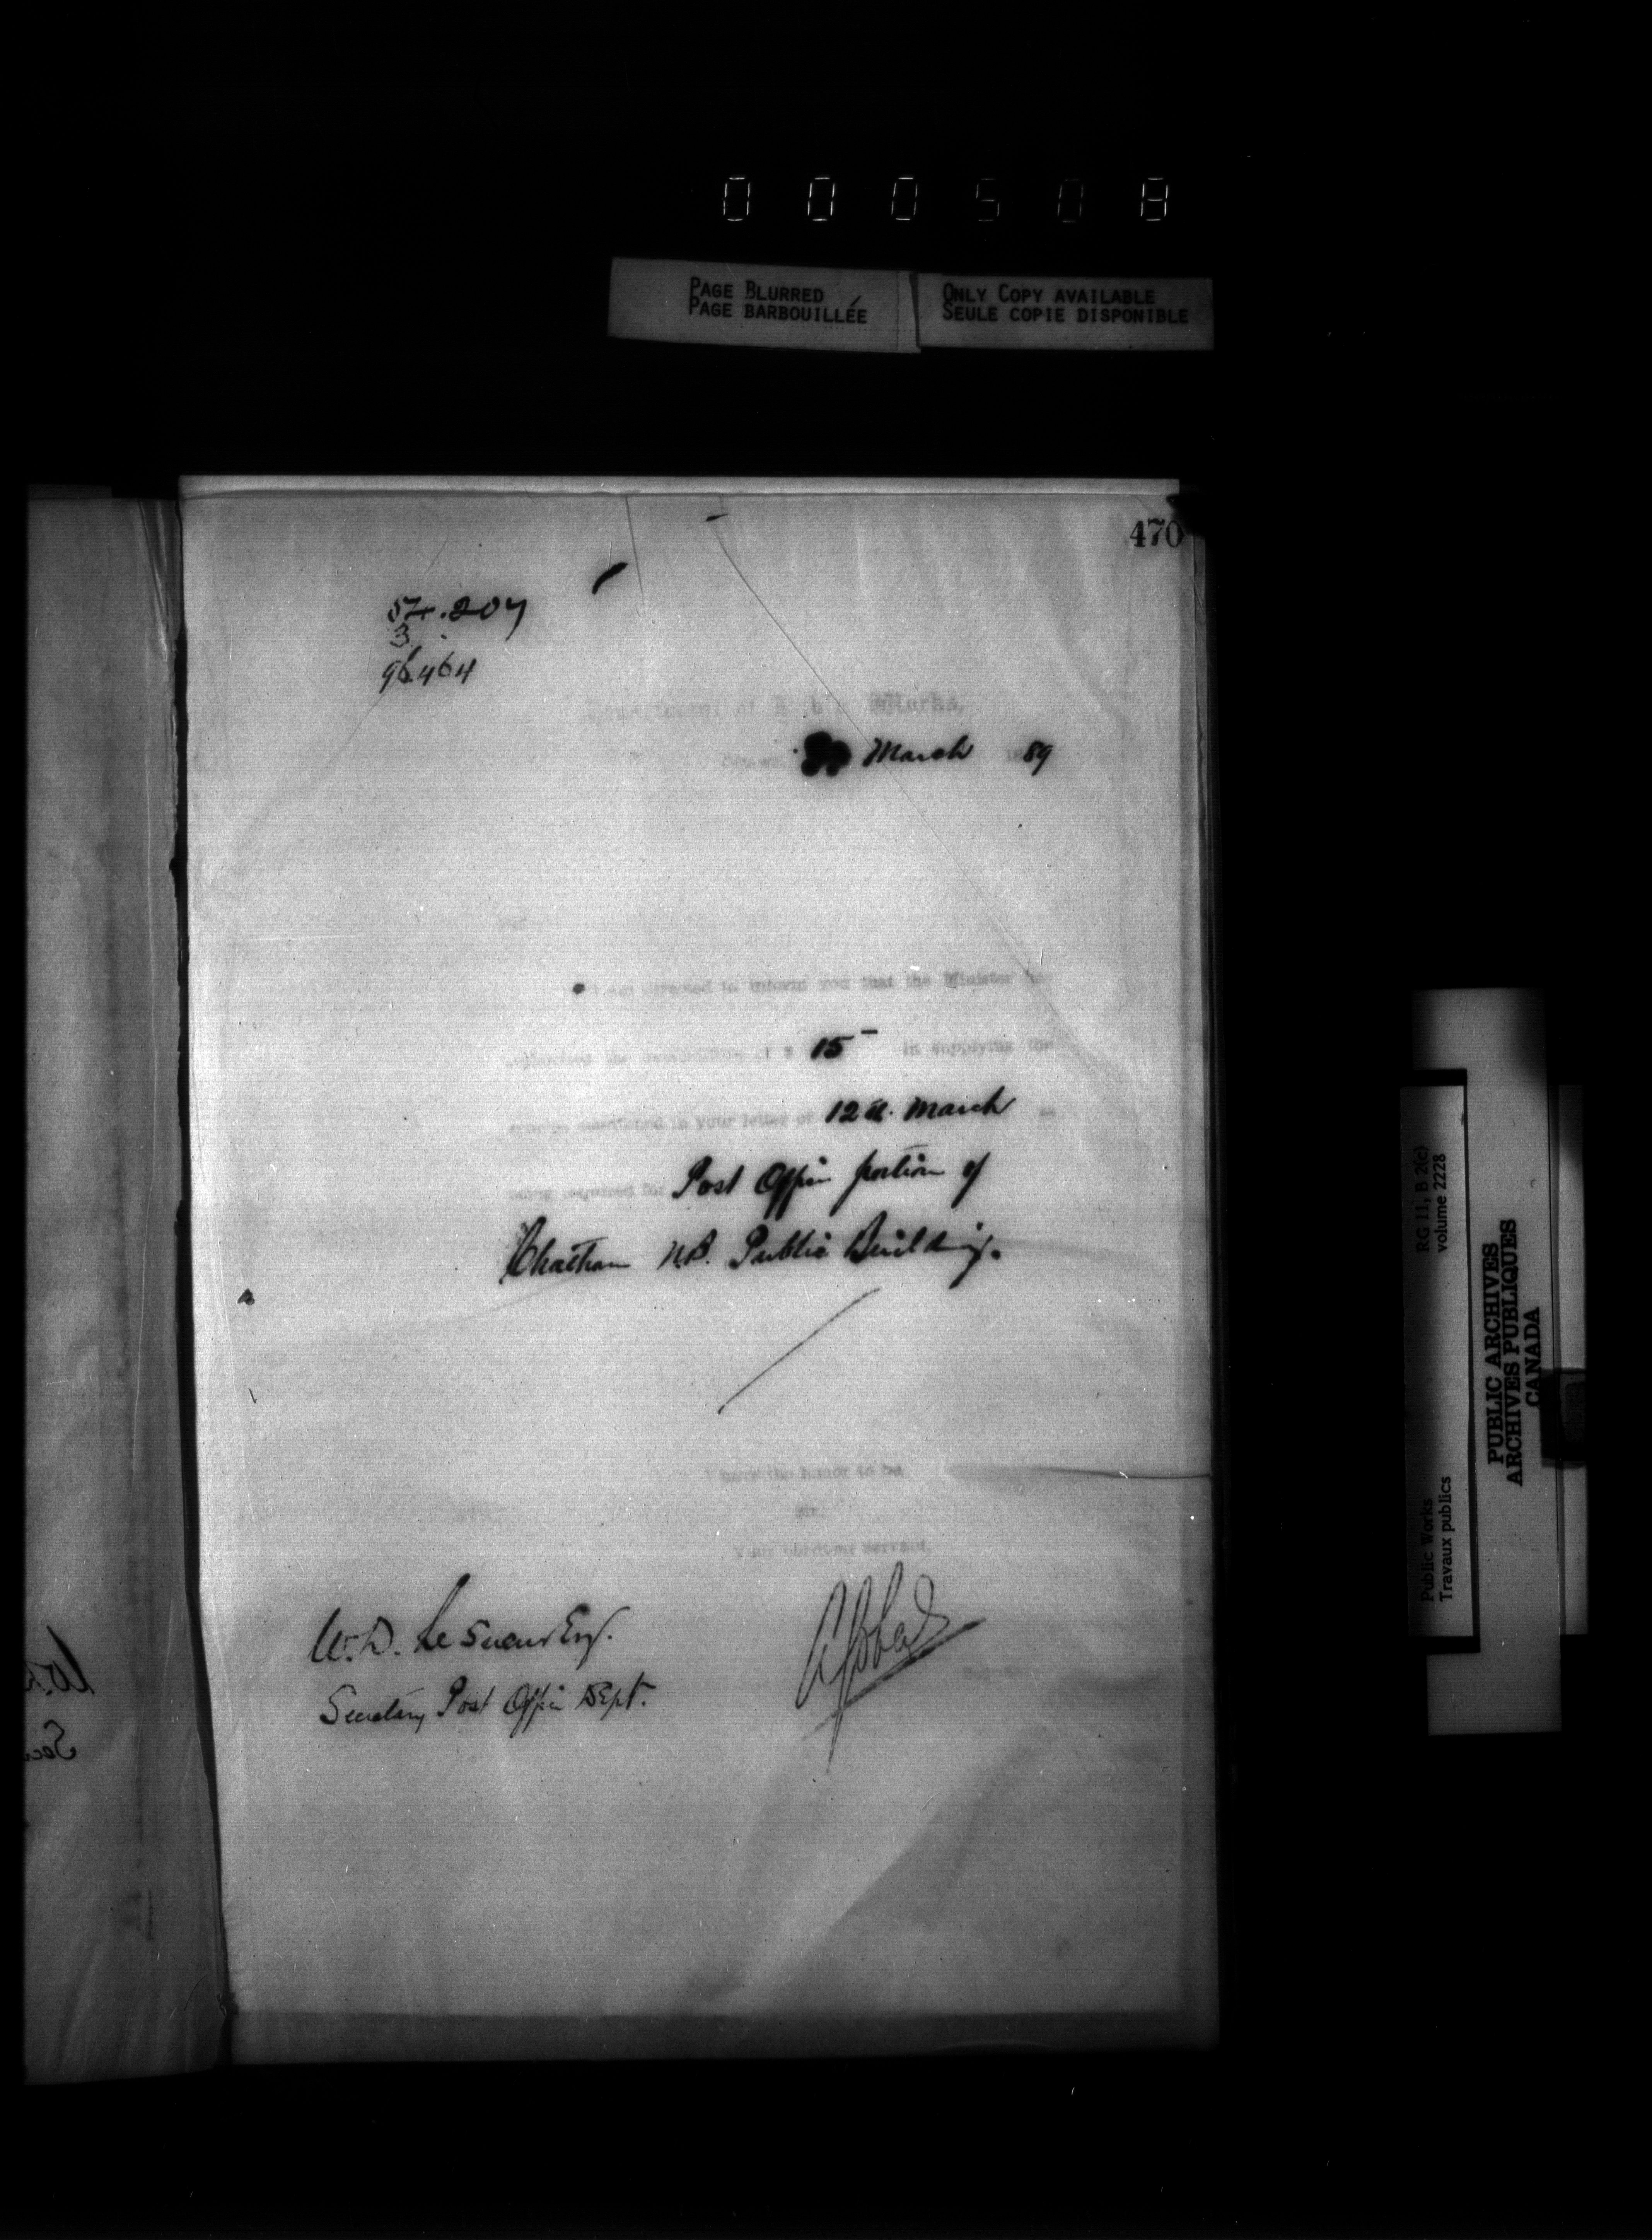 000508
PAGE BLURRED
PAGE BARBOUILLÉE
ONLY COPY AVAILABLE
SEULE COPIE DISPONIBLE
470
57.207
3
96464
Department of Works,
March 89
Sir
I am directed to inform you that the Minister has
authorized the expenditure of $ 15 - in supplying the
mentioned in your letter of 12th. March as
being required for Post Office portion of
Chatham N.B. Public Building.
I have the honor to be
Sir,
Your obedient Servant,
W.D. Le Sueur Esq.
Secretary Post Office Dept.
RG 11, B 2(c)
volume 2228
Public Works
Travaux publics
PUBLIC ARCHIVES
ARCHIVES PUBLIQUES
CANADA